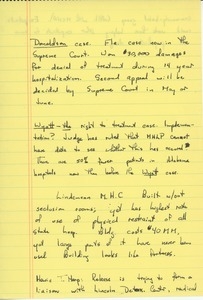 Donaldson case. Fla. case now in the
Supreme Court. Won $30,000 damages
for denial of treatment during 14 year
hospitalization. Second appeal will be
decided by Supreme Court in May or
June.
Wyatt - the right to treatment case. Implemen-
tation? Judge has ruled that MHLP cannot
have data to see whether this has occurred.
There are 50% fewer patients in Alabama
hospitals now than before the Wyatt case.
Lindeman M.H.C Built w/out
seclusion rooms, yet has highest rate
of use of physical restraint of all
state hosp. Bldg. costs $40 MM,
yet large parts of it have never been
used. Building looks like fortress.
Hosp. Release is trying to form a
liaison with Lincoln Detox. Center, radical